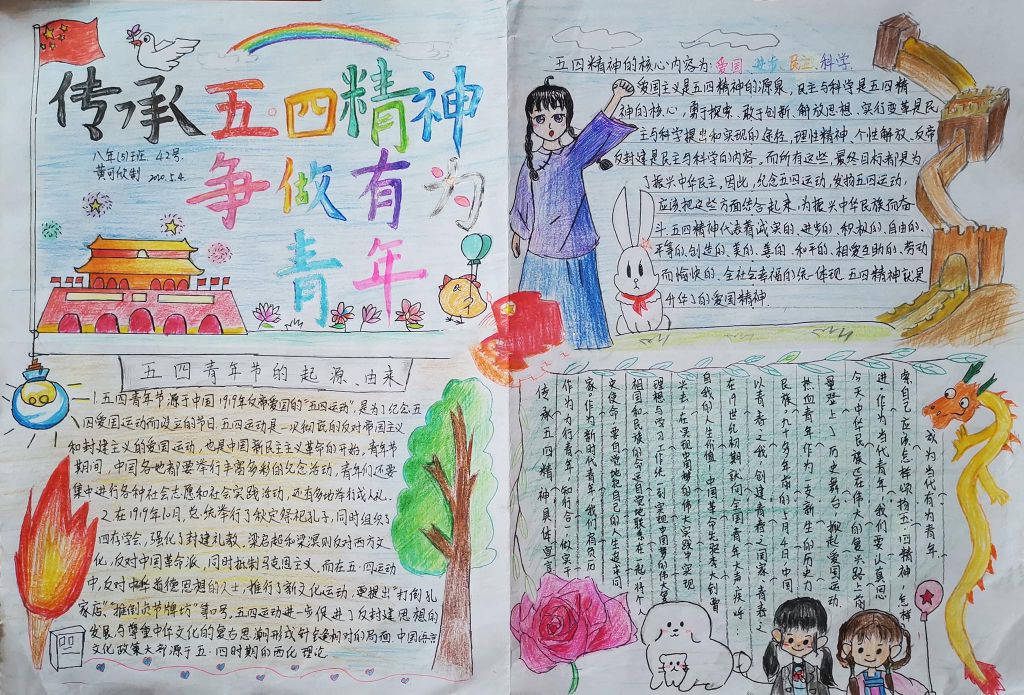 传承五·四精神
争做有为
青年
八年(5)班 42号.
黄可欣制 2020.5.4.
五四青年节的起源、由来
1.五四青年节源于中国1919年反帝爱国的"五四运动",是为了纪念五
四爱国运动而设立的节日.五四运动是一次彻底的反对帝国主义
和封建主义的爱国运动,也是中国新民主主义革命的开始,青年节
期间,中国各地都要举行丰富多彩的纪念活动,青年们还要
集中进行各种社会志愿和社会实践活动,还有多地举行成人礼.
2.在1919年10月,总统举行了秋实祭祀孔子,同时组织了
四存学会,强化了封建礼教、梁启超和梁漠则反对西方文
化,反对中国革命派,同时抵制马克思主义,而在五·四运动
中,反对中华道德思想的人士,推行了新文化运动,更提出"打倒孔
家店""推倒贞节牌坊"等口号.五四运动进步促进了反封建思想的
发展,与尊重中华文化的复古思潮形成针对的局面.中国语言
文化政策大部源于五·四时期的西化理论
五四精神的核心内容为:爱国、进步、民主、科学.
爱国主义是五四精神的源泉,民主与科学是五四精
神的核心,勇于探索、敢于创新、解放思想、实行变革是民
主与科学提出和实现的途径,理性精神、个性解放、反帝
反封建是民主与科学的内容.而所有这些,最终目标都是为
了振兴中华民主.因此,纪念五四运动,发扬五四运动,
应该把这些方面结合起来,为振兴中华民族而奋
斗.五四精神代表着诚实的、进步的、积极的、自由的、
平等的、创造的、美的、善的、和平的、相爱互助的、劳动
而愉快的、全社会幸福的统一体现.五四精神就是
的爱国精神
成为当代有为青年
索自己应该怎样颂扬五·四精神,怎样
进.作为当代青年,我们要认真思
今天中华民族还在伟大的复兴路上前
登上了历史舞台,掀起爱国运动.
热血青年作为一支新生的历史力量
民族.九十多年前的5月4日中国
以青春之我,创建青春之国家,青春之
在19世纪初期就向全国青年大声疾呼:
自我的人生价值.中国革命先驱李大钊曾
兴去,在实现中国梦的伟大实践中实现
理想与学习工作统一到实现中国梦的伟大
祖国和民族的命运自觉地联系在一起,将个人
史使命,要自觉地把自己的人生追求同
家.作为新时代青年,我们肩负历
作为有为青年,知行合一,做实干
传承五四精神具体宣言